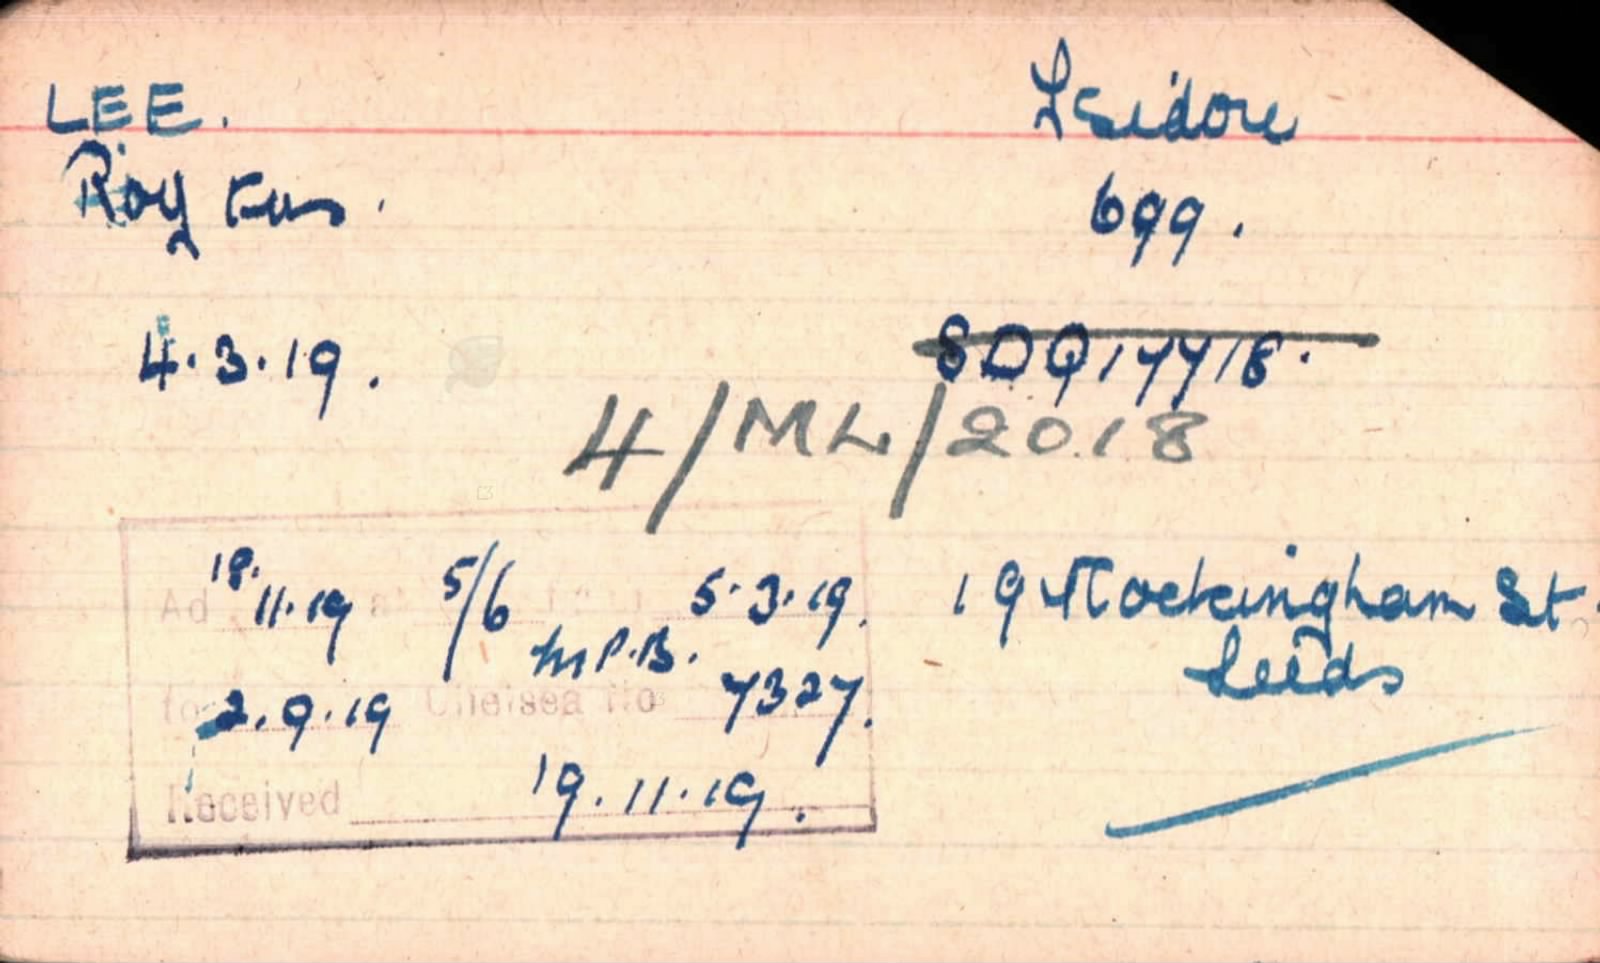 LEE. Isidore
Roy Fus. 699.
4.3.19. SDQ17718.
4/ML/2018
18.11.19 5/6 5.3.19. 19 Rockingham St.
M.P.B. Leeds
to 2.9.19 Chelsea No 7327.
Received 19.11.19.